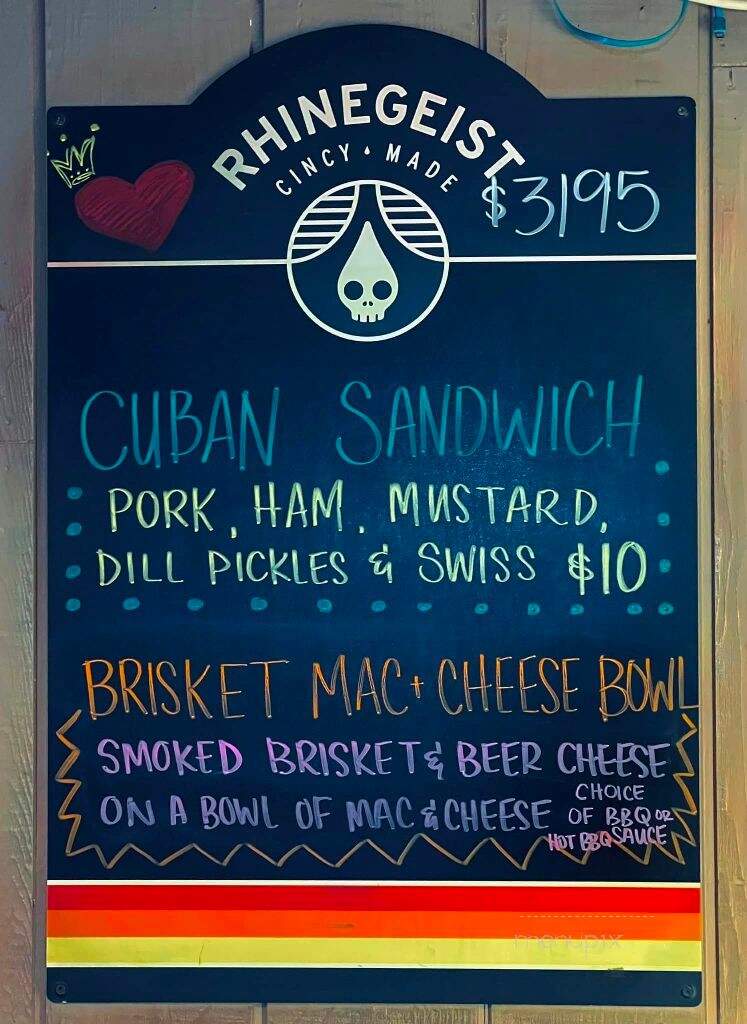 RHINEGEIST
CINCY • MADE
$3195
CUBAN SANDWICH
PORK, HAM, MUSTARD,
DILL PICKLES & SWISS $10
BRISKET MAC + CHEESE BOWL
SMOKED BRISKET & BEER CHEESE
ON A BOWL OF MAC & CHEESE
CHOICE
OF BBQ OR
HOT BBQ SAUCE
menupix